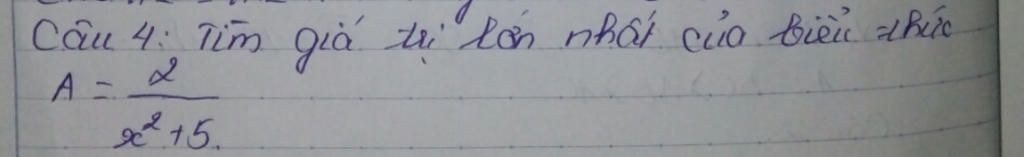 Câu 4: Tìm giá trị lớn nhất của biểu thức
A = 2 / x² + 5.